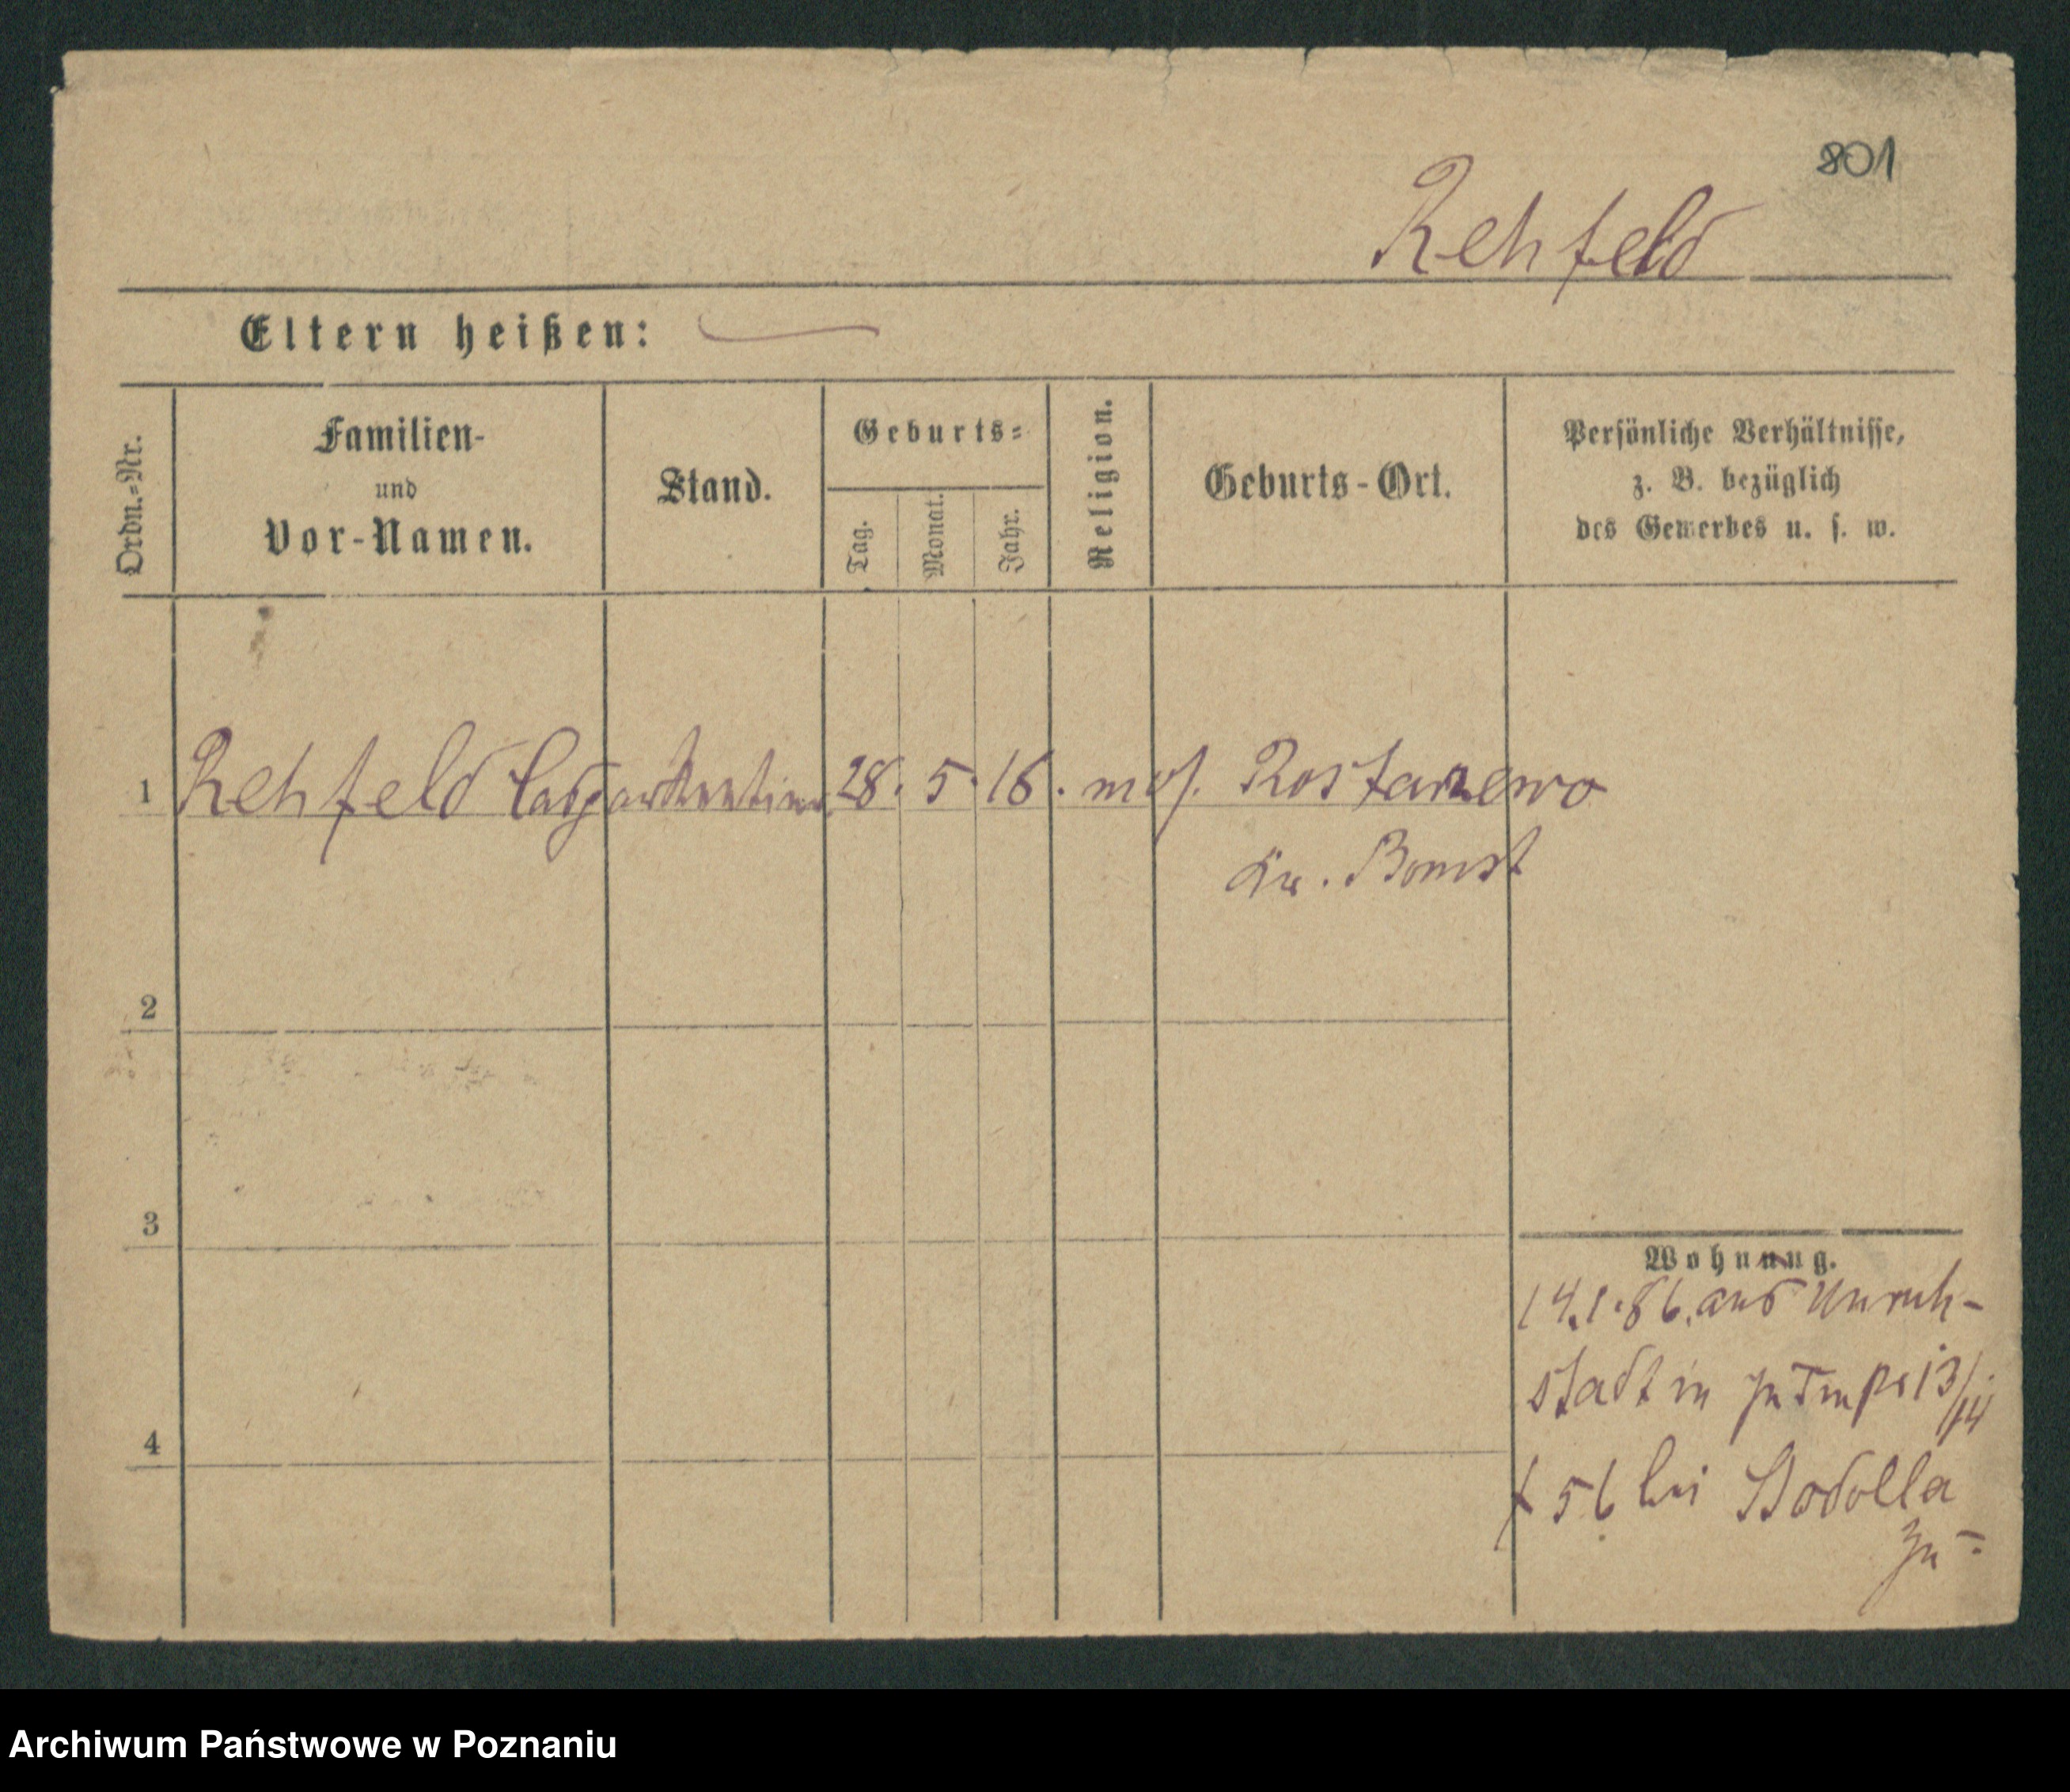 801
Rehfeld
Eltern heißen:
Ordn.-Nr.
Familien-
und
Vor-Namen.
Stand.
Geburts-
Tag.
Monat.
Jahr.
Religion.
Geburts-Ort.
Persönliche Verhältnisse,
z. B. bezüglich
des Gewerbes u. s. w.
1 Rehfeld 28. 5. 16. mos. Rostarzewo
Kr. Bomst
2
3
4
Wohnung.
14.1.86. aus Unruh-
stadt in
56 bei Stodolla
Archiwum Państwowe w Poznaniu